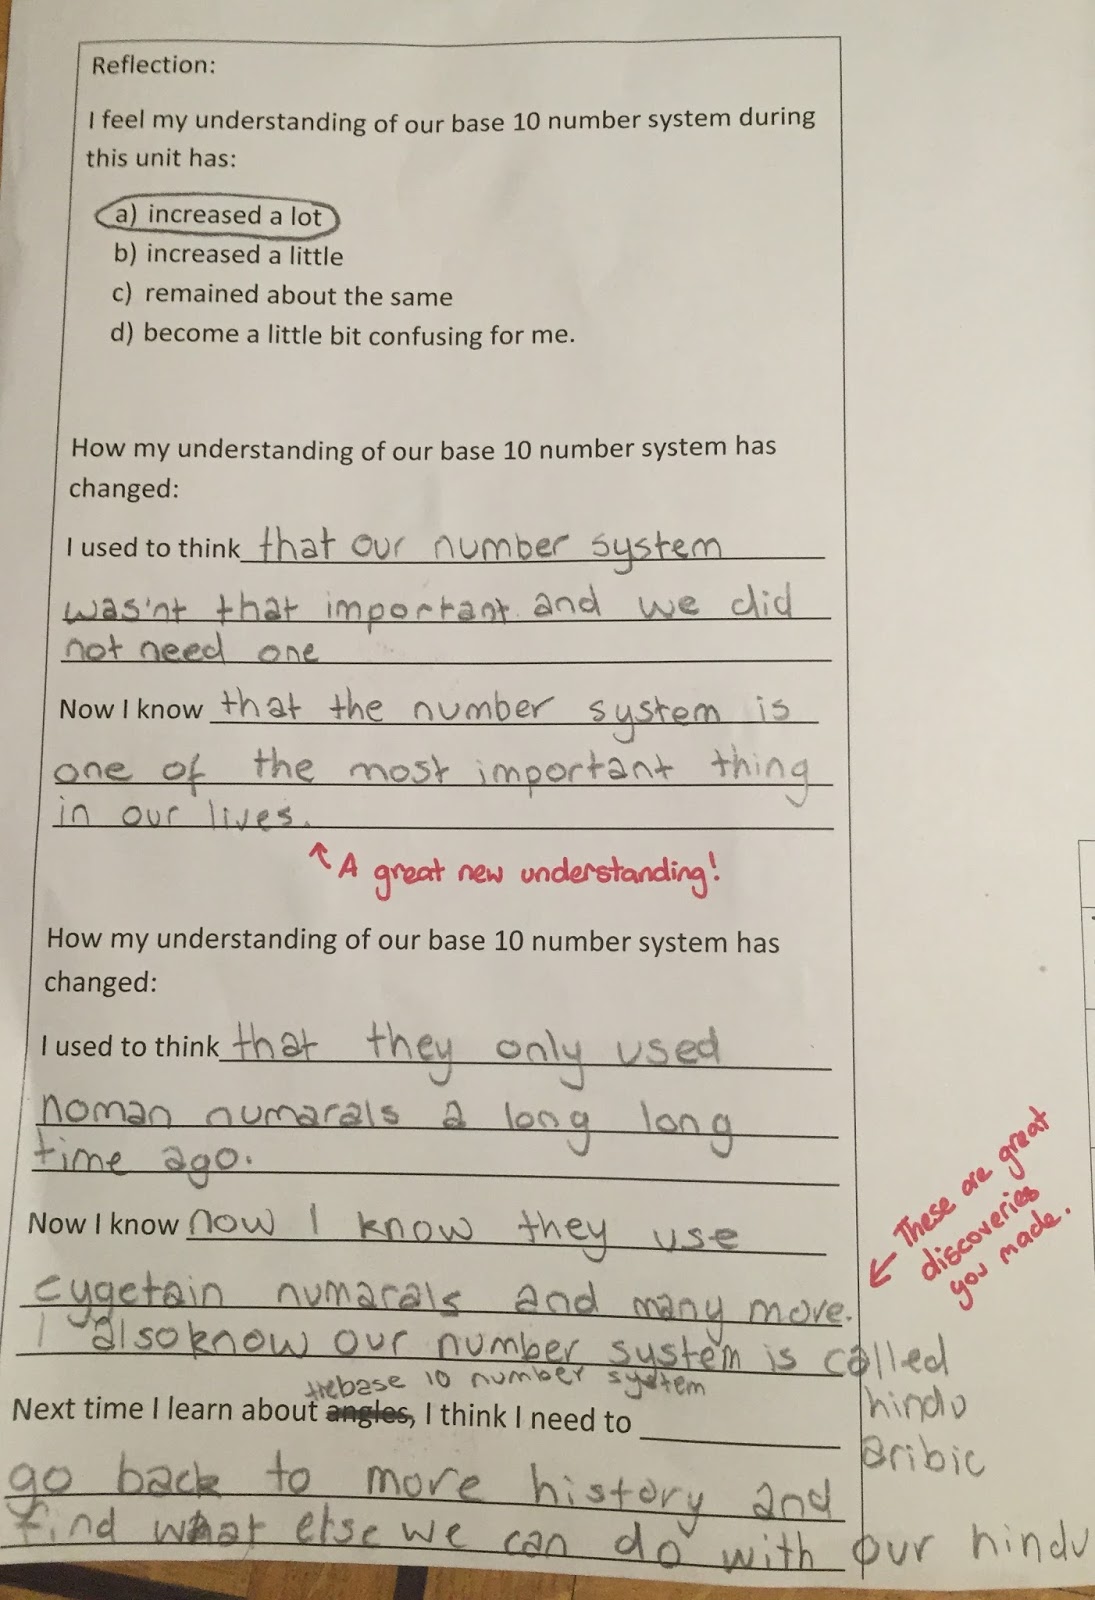 Reflection:
I feel my understanding of our base 10 number system during
this unit has:
a) increased a lot
b) increased a little
c) remained about the same
d) become a little bit confusing for me.
How my understanding of our base 10 number system has
changed:
I used to think that our number system
was'nt that important and we did
not need one
Now I know that the number system is
one of the most important thing
in our lives.
↑ A great new understanding!
How my understanding of our base 10 number system has
changed:
I used to think that they only used
noman numarals a long long
time ago.
Now I know now I know they use
eygetain numarals and many more.
I also know our number system is called
hindu
aribic
← These are great
discoveries
you made.
the base 10 number system
Next time I learn about angles, I think I need to
go back to more history and
find what else we can do with our hindu